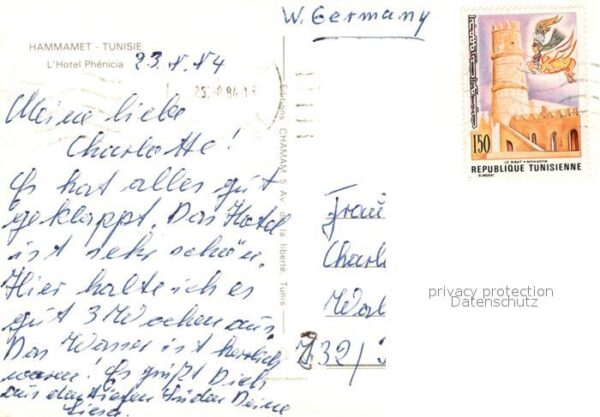 W. Germany
HAMMAMET - TUNISIE
L'Hotel Phénicia
23.8.84
Meine liebe
Charlotte!
Es hat alles gut
geklappt. Das Hotel
ist sehr schön.
Hier halte ich es
gut 3 Wochen aus.
Das Wasser ist herrlich
warm! Es grüßt Dich
aus dem tiefen Süden Deine
Editions CHAMAM 5 Av. de la liberté, Tunis
150
LE RIBAT MONASTIR
REPUBLIQUE TUNISIENNE
Frau
Charl
privacy protection
Datenschutz